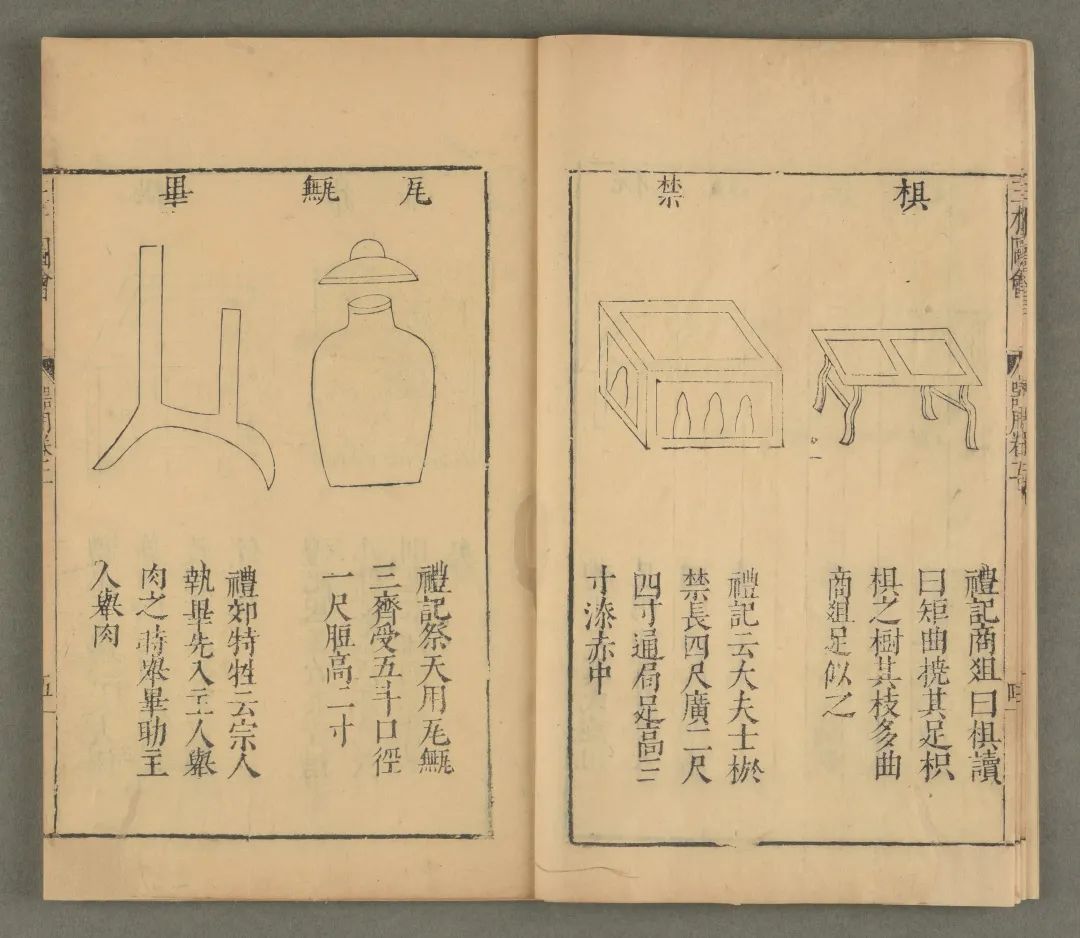 三才圖會
椇
禮記商俎曰椇讀
曰矩曲撓其足枳
椇之樹其枝多曲
商俎足似之
禁
禮記云大夫士棜
禁長四尺廣二尺
四寸通局足高三
寸漆赤中
瓦甒
禮記祭天用瓦甒
三齊受五斗口徑
一尺脰高二寸
畢
禮郊特牲云宗人
執畢先入主人舉
肉之時舉畢助主
人舉肉
圖會
器用卷二
五